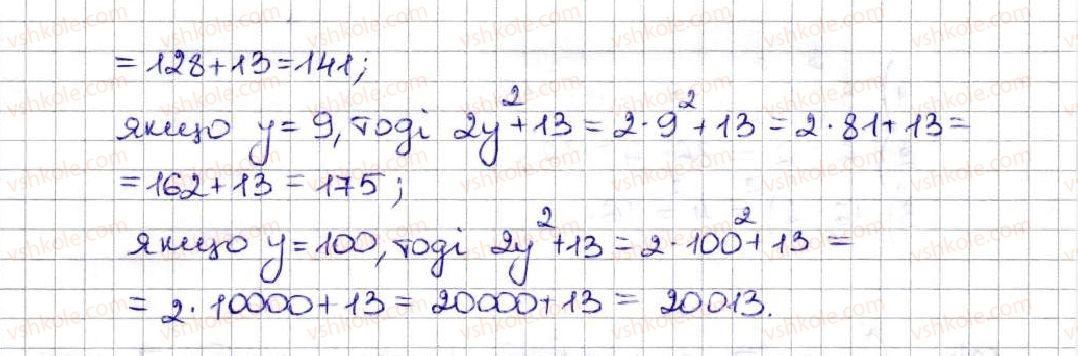 = 128 + 13 = 141;
якщо y = 9, тоді 2y² + 13 = 2 · 9² + 13 = 2 · 81 + 13 =
= 162 + 13 = 175;
якщо y = 100, тоді 2y² + 13 = 2 · 100² + 13 =
= 2 · 10000 + 13 = 20000 + 13 = 20013.